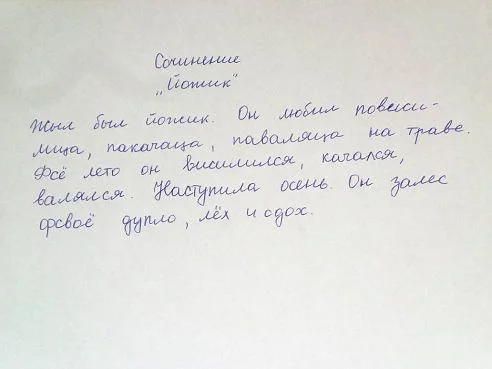 Сочинение
„Йожик“
Жыл был йожик. Он любил повеси-
лица, пакачаца, паваляца на траве.
Фсё лето он висилился, качался,
валялся. Наступила осень. Он залес
фсваё дупло, лёх и сдох.